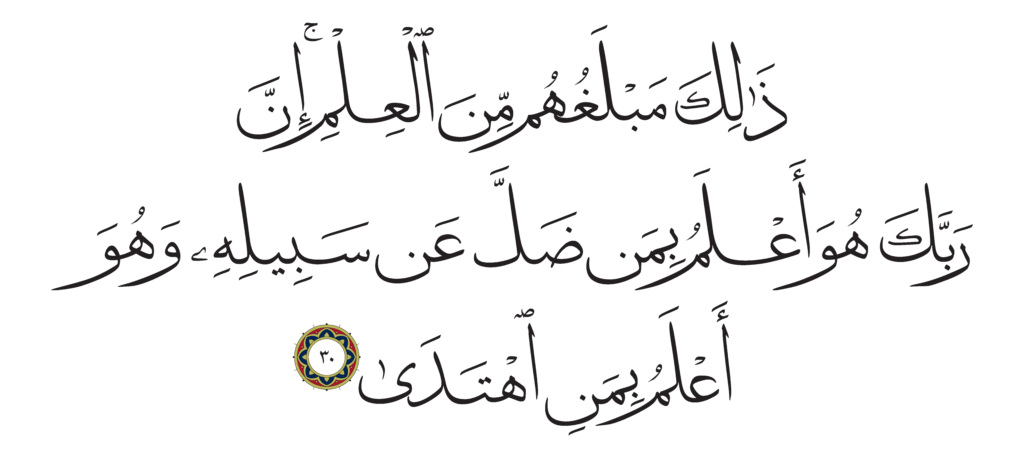 ذَٰلِكَ مَبْلَغُهُم مِّنَ ٱلْعِلْمِ ۚ إِنَّ
رَبَّكَ هُوَ أَعْلَمُ بِمَن ضَلَّ عَن سَبِيلِهِۦ وَهُوَ
أَعْلَمُ بِمَنِ ٱهْتَدَىٰ ٣٠